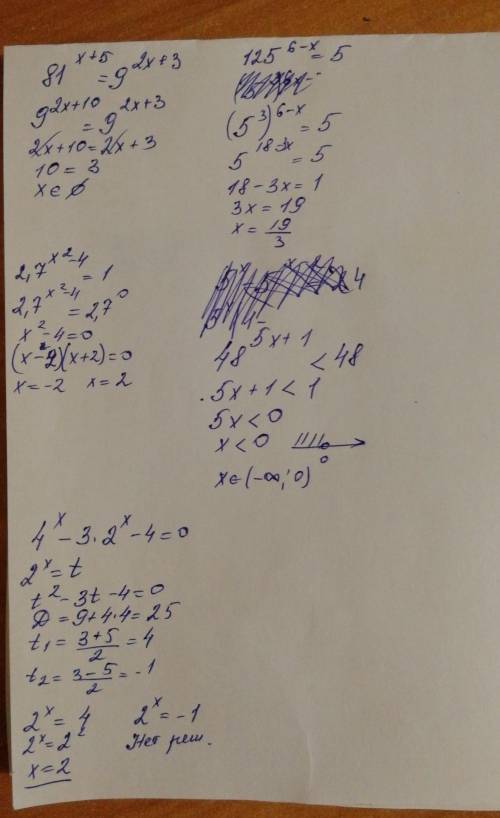 81^{x+5} = 9^{2x+3}
9^{2x+10} = 9^{2x+3}
2x+10=2x+3
10 = 3
x ∈ ∅
125^{6-x} = 5
(5^3)^{6-x} = 5
5^{18-3x} = 5
18-3x = 1
3x = 19
x = 19/3
2,7^{x^2-4} = 1
2,7^{x^2-4} = 2,7^0
x^2-4=0
(x-2)(x+2)=0
x=-2 x=2
48^{5x+1} < 48
5x+1<1
5x<0
x<0
0
x∈(-∞;0)
4^x-3·2^x-4=0
2^x=t
t^2-3t-4=0
D=9+4·4=25
t_1=(3+5)/2=4
t_2=(3-5)/2=-1
2^x=4 2^x=-1
2^x=2^2 Нет реш.
x=2